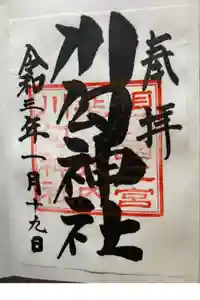 奉拝
川匂神社
令和三年一月十九日